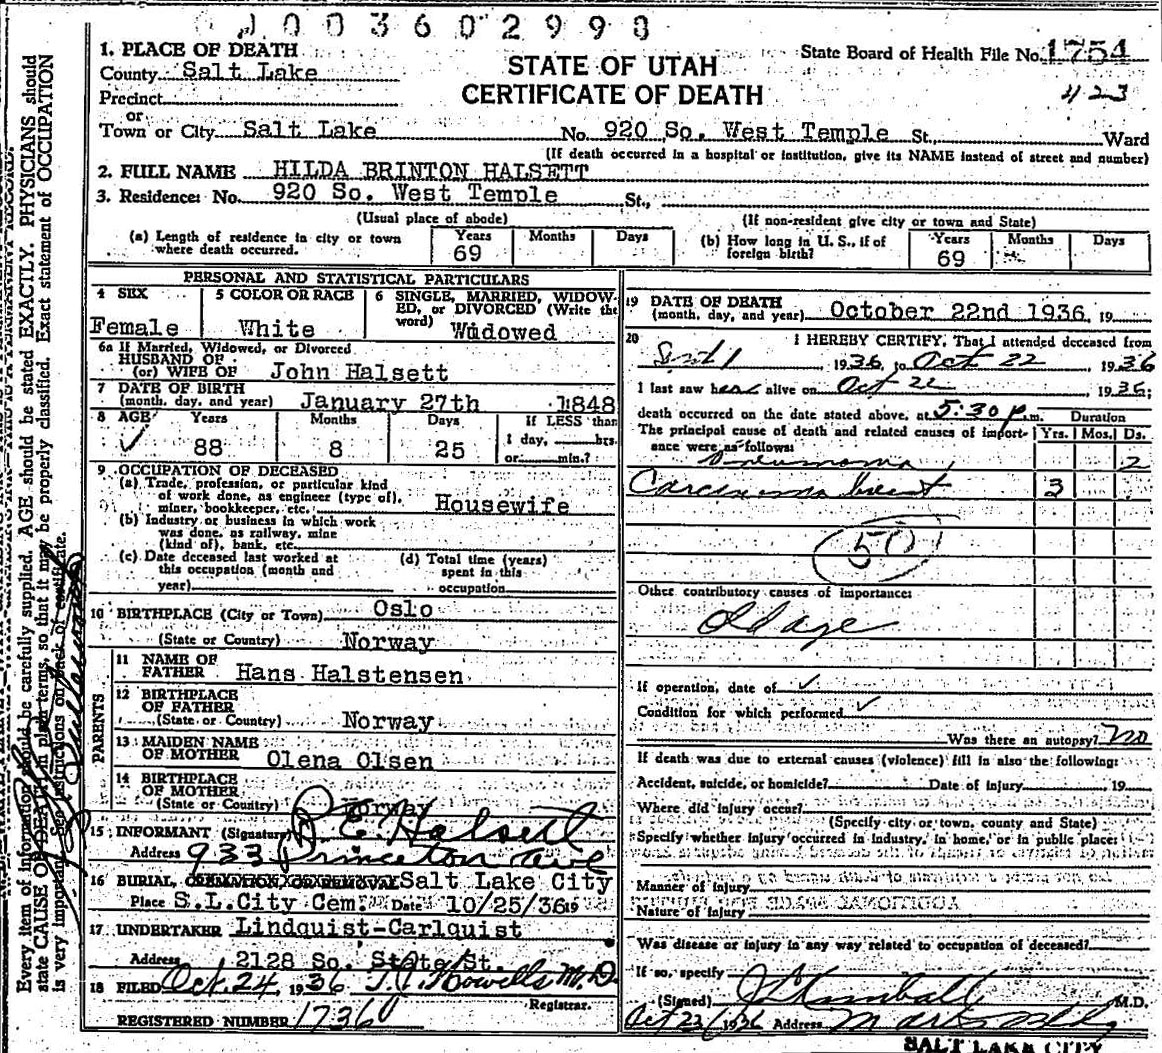 1003602990
1. PLACE OF DEATH
County Salt Lake
Precinct
or
Town or City Salt Lake No. 920 So. West Temple St., Ward
STATE OF UTAH
CERTIFICATE OF DEATH
State Board of Health File No. 1754
423
(If death occurred in a hospital or institution, give its NAME instead of street and number)
2. FULL NAME HILDA BRINTON HALSETT
3. Residence: No. 920 So. West Temple St.,
(Usual place of abode) (If non-resident give city or town and State)
(a) Length of residence in city or town where death occurred. Years 69 Months Days
(b) How long in U. S., if of foreign birth? Years 69 Months Days
PERSONAL AND STATISTICAL PARTICULARS
4 SEX Female
5 COLOR OR RACE White
6 SINGLE, MARRIED, WIDOWED, or DIVORCED (Write the word) Widowed
6a If Married, Widowed, or Divorced
HUSBAND OF
(or) WIFE OF John Halsett
7 DATE OF BIRTH
(month, day, and year) January 27th 1848
8 AGE Years 88 Months 8 Days 25 If LESS than 1 day, hrs. or min.?
9 OCCUPATION OF DECEASED
(a) Trade, profession, or particular kind
of work done, as engineer (type of),
miner, bookkeeper, etc. Housewife
(b) Industry or business in which work
was done, as railway, mine
(kind of), bank, etc.
(c) Date deceased last worked at
this occupation (month and
year)
(d) Total time (years)
spent in this
occupation
10 BIRTHPLACE (City or Town) Oslo
(State or Country) Norway
PARENTS
11 NAME OF
FATHER Hans Halstensen
12 BIRTHPLACE
OF FATHER
(State or Country) Norway
13 MAIDEN NAME
OF MOTHER Olena Olsen
14 BIRTHPLACE
OF MOTHER
(State or Country) Norway
15 INFORMANT (Signature) P. E. Halsett
Address 933 Princeton Ave
16 BURIAL, CREMATION OR REMOVAL Salt Lake City
Place S.L.City Cem. Date 10/25/36 19
17 UNDERTAKER Lindquist-Carlquist
Address 2128 So. State St.
18 FILED Oct. 24, 1936 T. J. Howells M.D.
Registrar.
REGISTERED NUMBER 1736
19 DATE OF DEATH
(month, day, and year) October 22nd 1936, 19
20 I HEREBY CERTIFY, That I attended deceased from
Sept 1, 1936 to Oct 22, 1936
I last saw her alive on Oct 22 1936;
death occurred on the date stated above, at 5:30 p.m. Duration
The principal cause of death and related causes of importance were as follows: Yrs. Mos. Ds.
Pneumonia 2
Carcinoma breast 3
50
Other contributory causes of importance:
Old age
If operation, date of
Condition for which performed
Was there an autopsy? no
If death was due to external causes (violence) fill in also the following:
Accident, suicide, or homicide? Date of injury, 19
Where did injury occur?
(Specify city or town, county and State)
Specify whether injury occurred in industry, in home, or in public place:
Manner of injury
Nature of injury
Was disease or injury in any way related to occupation of deceased?
If so, specify
(Signed) Kimball M.D.
Oct 23/1936 Address
SALT LAKE CITY
Every item of information should be carefully supplied. AGE should be stated EXACTLY. PHYSICIANS should
state CAUSE OF DEATH in plain terms, so that it may be properly classified. Exact statement of OCCUPATION
is very important. See instructions on back of certificate.